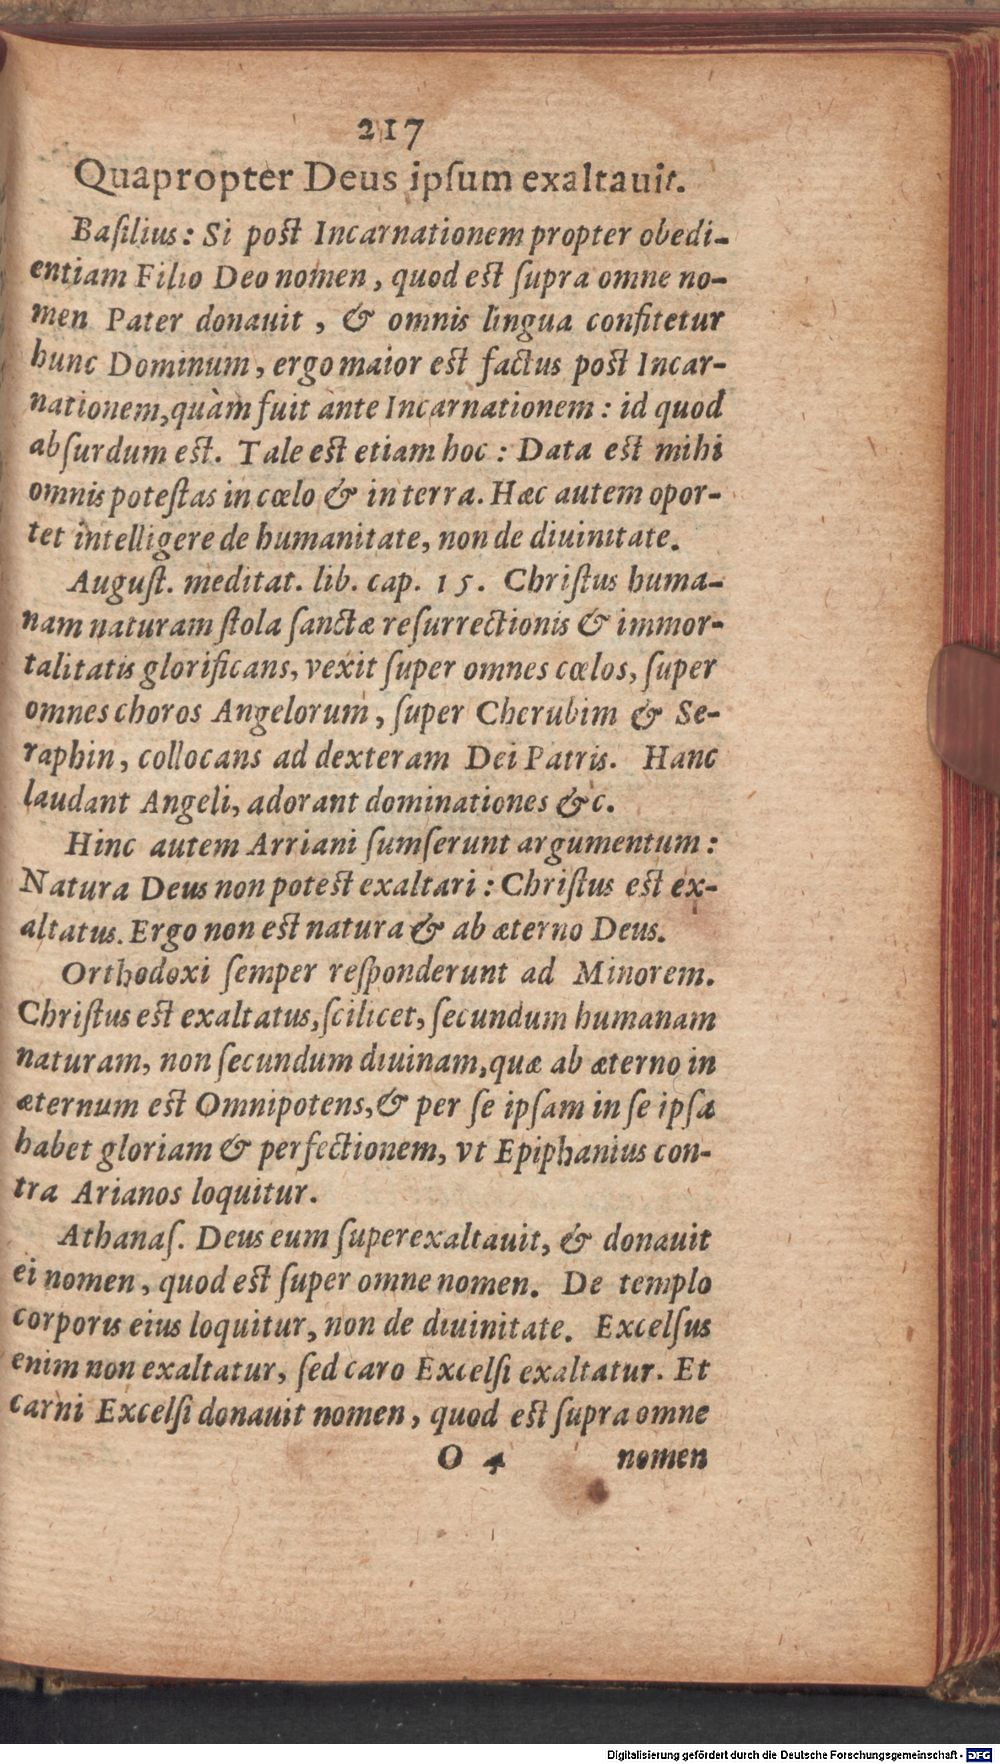 217
Quapropter Deus ipſum exaltauit.
Baſilius: Si poſt Incarnationem propter obedi-
entiam Filio Deo nomen, quod eſt ſupra omne no-
men Pater donauit, & omnis lingua confitetur
hunc Dominum, ergo maior eſt factus poſt Incar-
nationem, quàm fuit ante Incarnationem: id quod
abſurdum eſt. Tale eſt etiam hoc: Data eſt mihi
omnis poteſtas in cœlo & in terra. Hæc autem opor-
tet intelligere de humanitate, non de diuinitate.
Auguſt. meditat. lib. cap. 15. Chriſtus huma-
nam naturam ſtola ſanctæ reſurrectionis & immor-
talitatis glorificans, vexit ſuper omnes cœlos, ſuper
omnes choros Angelorum, ſuper Cherubim & Se-
raphin, collocans ad dexteram Dei Patris. Hanc
laudant Angeli, adorant dominationes &c.
Hinc autem Arriani ſumſerunt argumentum:
Natura Deus non poteſt exaltari: Chriſtus eſt ex-
altatus. Ergo non eſt natura & ab æterno Deus.
Orthodoxi ſemper reſponderunt ad Minorem.
Chriſtus eſt exaltatus, ſcilicet, ſecundum humanam
naturam, non ſecundum diuinam, quæ ab æterno in
æternum eſt Omnipotens, & per ſe ipſam in ſe ipſa
habet gloriam & perfectionem, vt Epiphanius con-
tra Arianos loquitur.
Athanaſ. Deus eum ſuperexaltauit, & donauit
ei nomen, quod eſt ſuper omne nomen. De templo
corporis eius loquitur, non de diuinitate. Excelſus
enim non exaltatur, ſed caro Excelſi exaltatur. Et
carni Excelſi donauit nomen, quod eſt ſupra omne
O 4 nomen
Digitalisierung gefördert durch die Deutsche Forschungsgemeinschaft - DFG